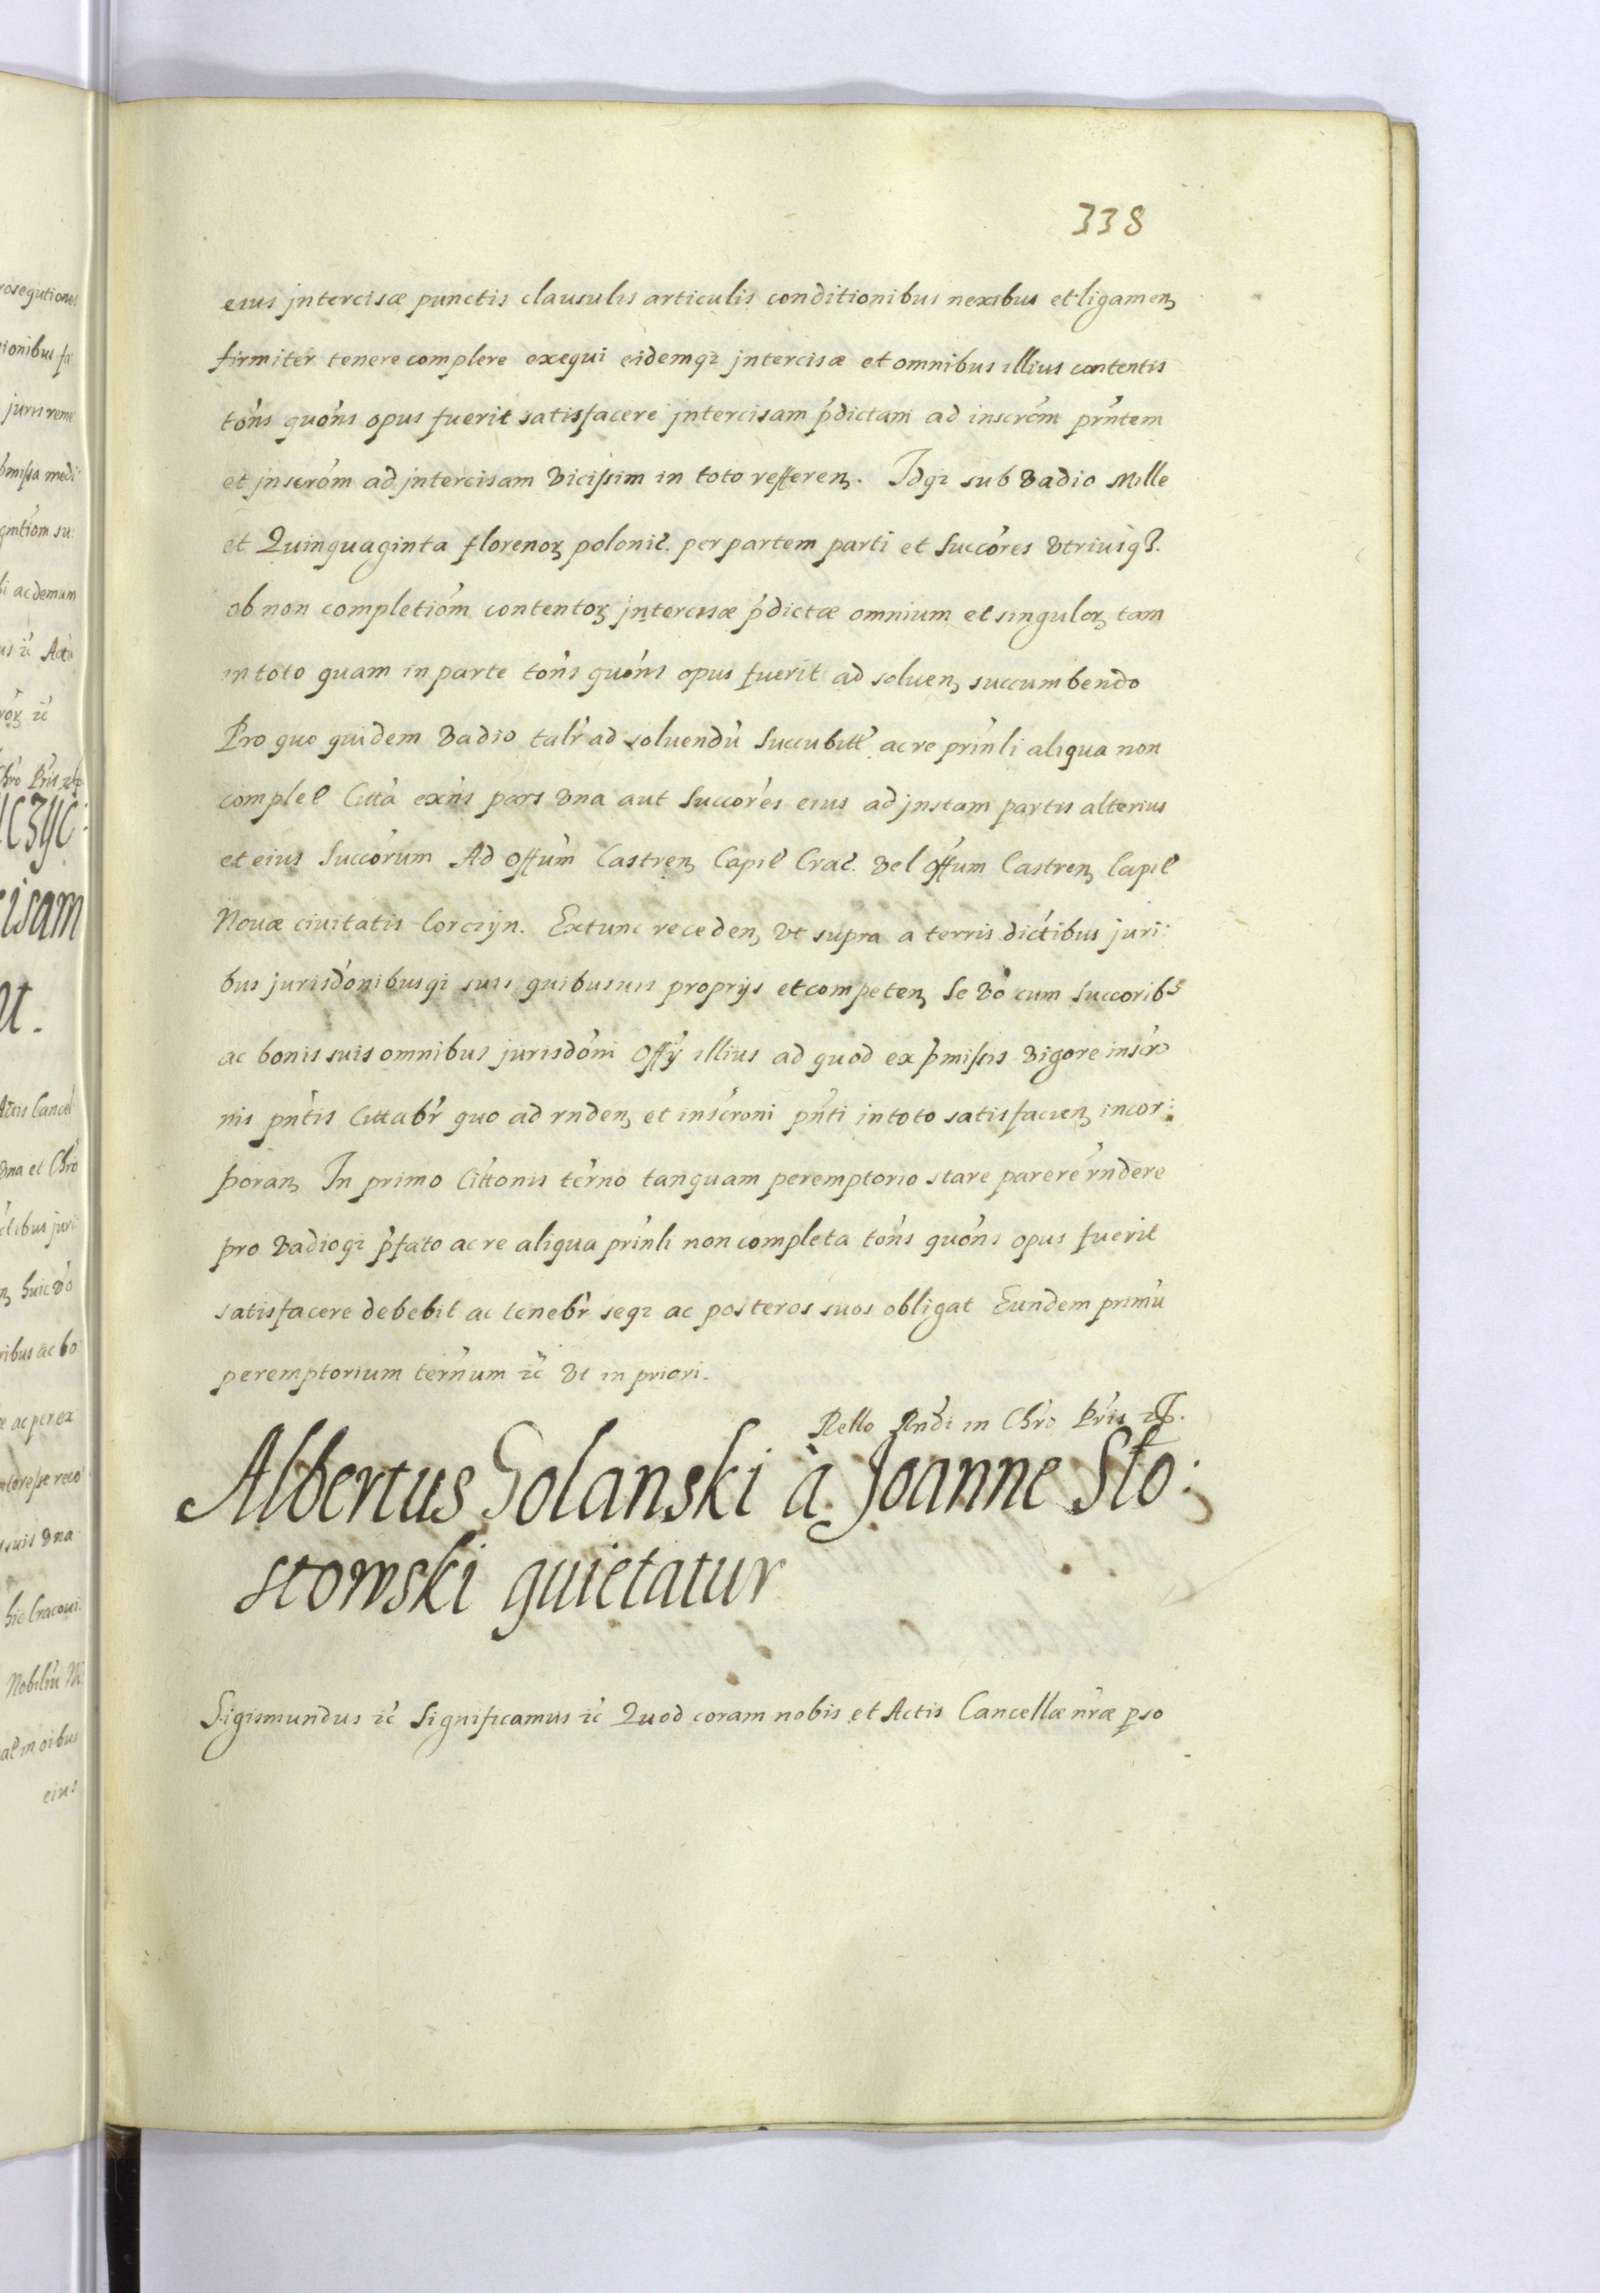 338
eius jntercisæ punctis clausulis articulis conditionibus nexibus et ligamenꝫ
firmiter tenere complere exequi eidemqꝫ jntercisæ et omnibus illius contentis
tońs quońs opus fuerit satisfacere jntercisam p̓dictam ad inscrōm prn̄tem
et jnscrōm ad jntercisam vicissim in toto refferenꝫ. Idqꝫ sub vadio Mille
et Quinquaginta florenoꝝ polonic̄. per partem parti et succōres vtriusqꝫ.
ob non completiōm contentoꝝ jntercisæ p̓dictæ omnium et singuloꝝ tam
in toto quam in parte tońs quońs opus fuerit ad soluenꝫ succumbendo
Pro quo quidem vadio talr̄ ad soluendū succubitt̄ ac re prīnli aliqua non
complet̄ Citta exn̄s pars vna aut succōres eius ad jnstam partis alterius
et eius succōrum Ad Offūm Castrenꝫ Capit̄ Crac̄. vel Offūm Castrenꝫ Capit̄
Nouæ ciuitatis Corczyn. Extunc recedenꝫ vt supra a terris dictībus juri:
bus jurisdōnibusqꝫ suis quibusuis proprijs et competenꝫ se vō cum succoribꝰ
ac bonis suis omnibus jurisdōni Offy illius ad quod ex p̄missis vigore inscrō
nis pn̄tis Cittabr̄ quo ad rndenꝫ et inscrōni pn̄ti in toto satisfacienꝫ incor:
poranꝫ In primo Cittonis tern̄o tanquam peremptorio stare parere rndere
pro vadioqꝫ p̄fato ac re aliqua prīnli non completa tońs quońs opus fuerit
satisfacere debebit ac tenebr̄ seqꝫ ac posteros suos obligat Eundem primū
peremptorium tern̄um ꝛc̄ vt in priori.
Rello Rndi in Chrō Prīs
Albertus Golanski à Joanne Sto:
stowski quietatur
Sigismundus ꝛc̄ Significamus ꝛc̄ Quod coram nobis et Actis Cancellæ nr̄æ pso